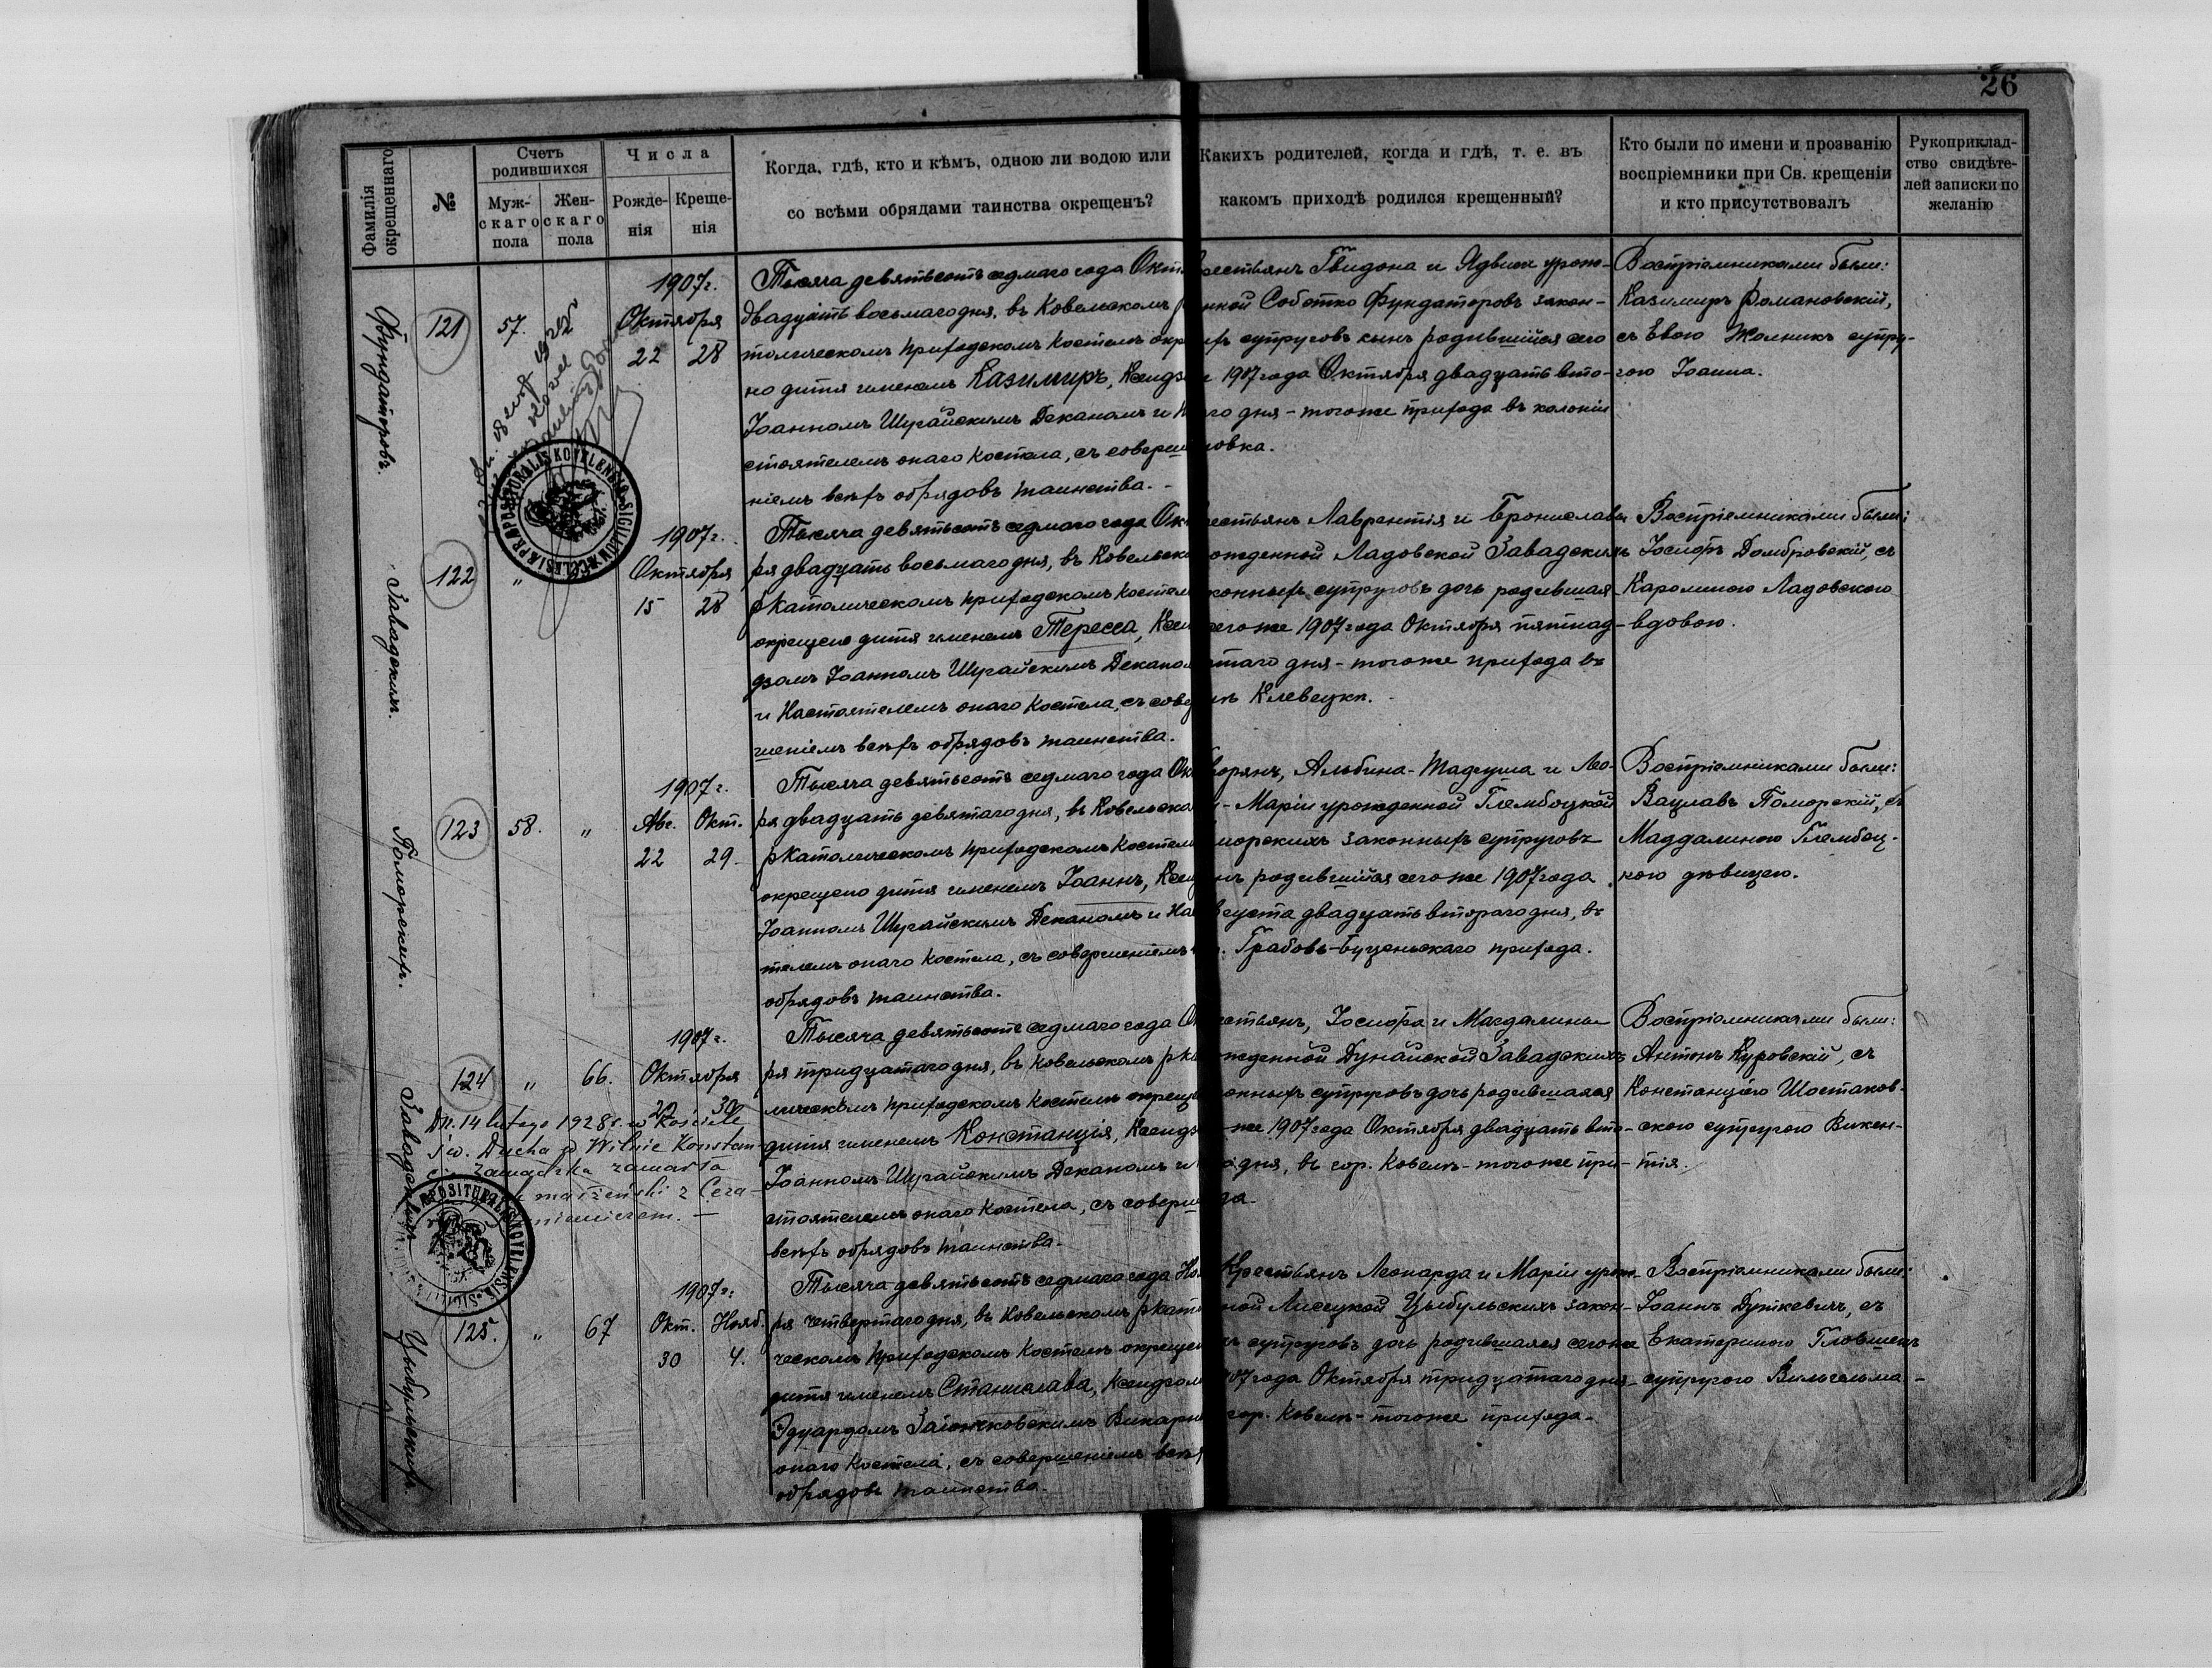 26
Фамилія окрещеннаго
№
Счетъ родившихся
Мужскаго пола
Женскаго пола
Числа
Рожденія
Крещенія
Когда, гдѣ, кто и кѣмъ, одною ли водою или
со всѣми обрядами таинства окрещенъ?
Какихъ родителей, когда и гдѣ, т. е. въ
какомъ приходѣ родился крещенный?
Кто были по имени и прозванію
воспріемники при Св. крещеніи
и кто присутствовалъ
Рукоприклад-
ство свидѣте-
лей записки по
желанію
Фундаторовъ.
121
57.
1907г.
Октября
22 28
Тысяча девятьсотъ седмаго года Окт
двадцать восьмаго дня, въ Ковельскомъ
толическомъ приходскомъ костелѣ окр
но дитя именемъ Казимиръ, Ксендз
Іоанномъ Шурайскимъ Деканомъ и
стоятелемъ онаго Костела, съ соверш
ніемъ всѣхъ обрядовъ таинства.
рестьянъ Гвидона и Ядвиги урож-
нной Соботко Фундаторовъ закон-
ыхъ супруговъ сынъ родившійся сего
1907 года Октября двадцать вто-
го дня - тогоже прихода въ колоніи
овка.
Воспріемниками были:
Казимиръ Романовскій,
съ Евою Жолникъ супру-
гою Іоанна.
Kowel
PRAEPOSITURALIS KOVELENSIS SIGILLUM ECCLESIAE
Завадскихъ.
122
"
1907г.
Октября
15 28
Тысяча девятьсотъ седмаго года Окт
ря двадцать восьмаго дня, въ Ковельско
рКатолическомъ приходскомъ костел
окрещено дитя именемъ Тересса, Ксен
дзомъ Іоанномъ Шурайскимъ Декано
и Настоятелемъ онаго Костела, съ сове
шеніемъ всѣхъ обрядовъ таинства.
рестьянъ Лаврентія и Брониславы
ожденной Ладовской Завадскихъ
конныхъ супруговъ дочь родившая
сегоже 1907 года Октября пятнад-
таго дня - тогоже прихода въ
Клевецкъ.
Воспріемниками были:
Іосифъ Домбровскій, съ
Каролиною Ладовскою
вдовою.
Поморскихъ.
123
58.
"
1907г.
Авг. Окт.
22 29
Тысяча девятьсотъ седмаго года Ок
ря двадцать девятаго дня, въ Ковельско
рКатолическомъ приходскомъ костел
окрещено дитя именемъ Іоаннъ, Ксен
Іоанномъ Шурайскимъ Деканомъ и На
телемъ онаго Костела, съ совершеніемъ
обрядовъ таинства.
ворянъ, Альбина-Тадеуша и Лео-
- Маріи урожденной Глембоцкой
морскихъ законныхъ супруговъ
нъ родившійся сегоже 1907 года
вгуста двадцать втораго дня, въ
Грабовъ-Буценьскаго прихода.
Воспріемниками были:
Вацлавъ Поморскій, съ
Магдалиною Глембоц-
кою дѣвицею.
Завадскихъ
124
"
66.
1907г.
Октября
22 30
Тысяча девятьсотъ седмаго года О
ря тридцатаго дня, въ Ковельскомъ рКа
лическомъ приходскомъ Костелѣ окрещ
дитя именемъ Констанція, Ксендз
Іоанномъ Шурайскимъ Деканомъ и
стоятелемъ онаго Костела, съ соверш
всѣхъ обрядовъ таинства.
естьянъ, Іосифа и Магдалины
жденной Дунайской Завадскихъ
онныхъ супруговъ дочь родившаяся
же 1907 года Октября двадцать вто-
дня, въ гор. Ковелѣ - тогоже при-
да.
Воспріемниками были:
Антонъ Куровскій, съ
Констанціею Шостаков-
скою супругою Викен-
тія.
Dn. 14 lutego 1928 r. w Kościele
św. Ducha w Wilnie Konstan-
cja Zawadzka zawarła
małżeński z Ceza-
Цыбульскихъ.
125.
"
67
1907г.
Окт. Нояб.
30 4.
Тысяча девятьсотъ седмаго года Но
ря четвертаго дня, въ Ковельскомъ рКато
ческомъ приходскомъ Костелѣ окрещен
дитя именемъ Станислава, Ксендзом
Эдуардомъ Заіончковскимъ Викарі
онаго Костела, съ совершеніемъ всѣх
обрядовъ таинства.
Крестьянъ Леонарда и Маріи урож-
ной Лисецкой Цыбульскихъ закон-
ъ супруговъ дочь родившаяся сегоже
07 года Октября тридцатаго дня
гор. Ковелѣ - тогоже прихода.
Воспріемниками были:
Іоаннъ Дуткевичъ, съ
Екатериною
супругою Вильгельма